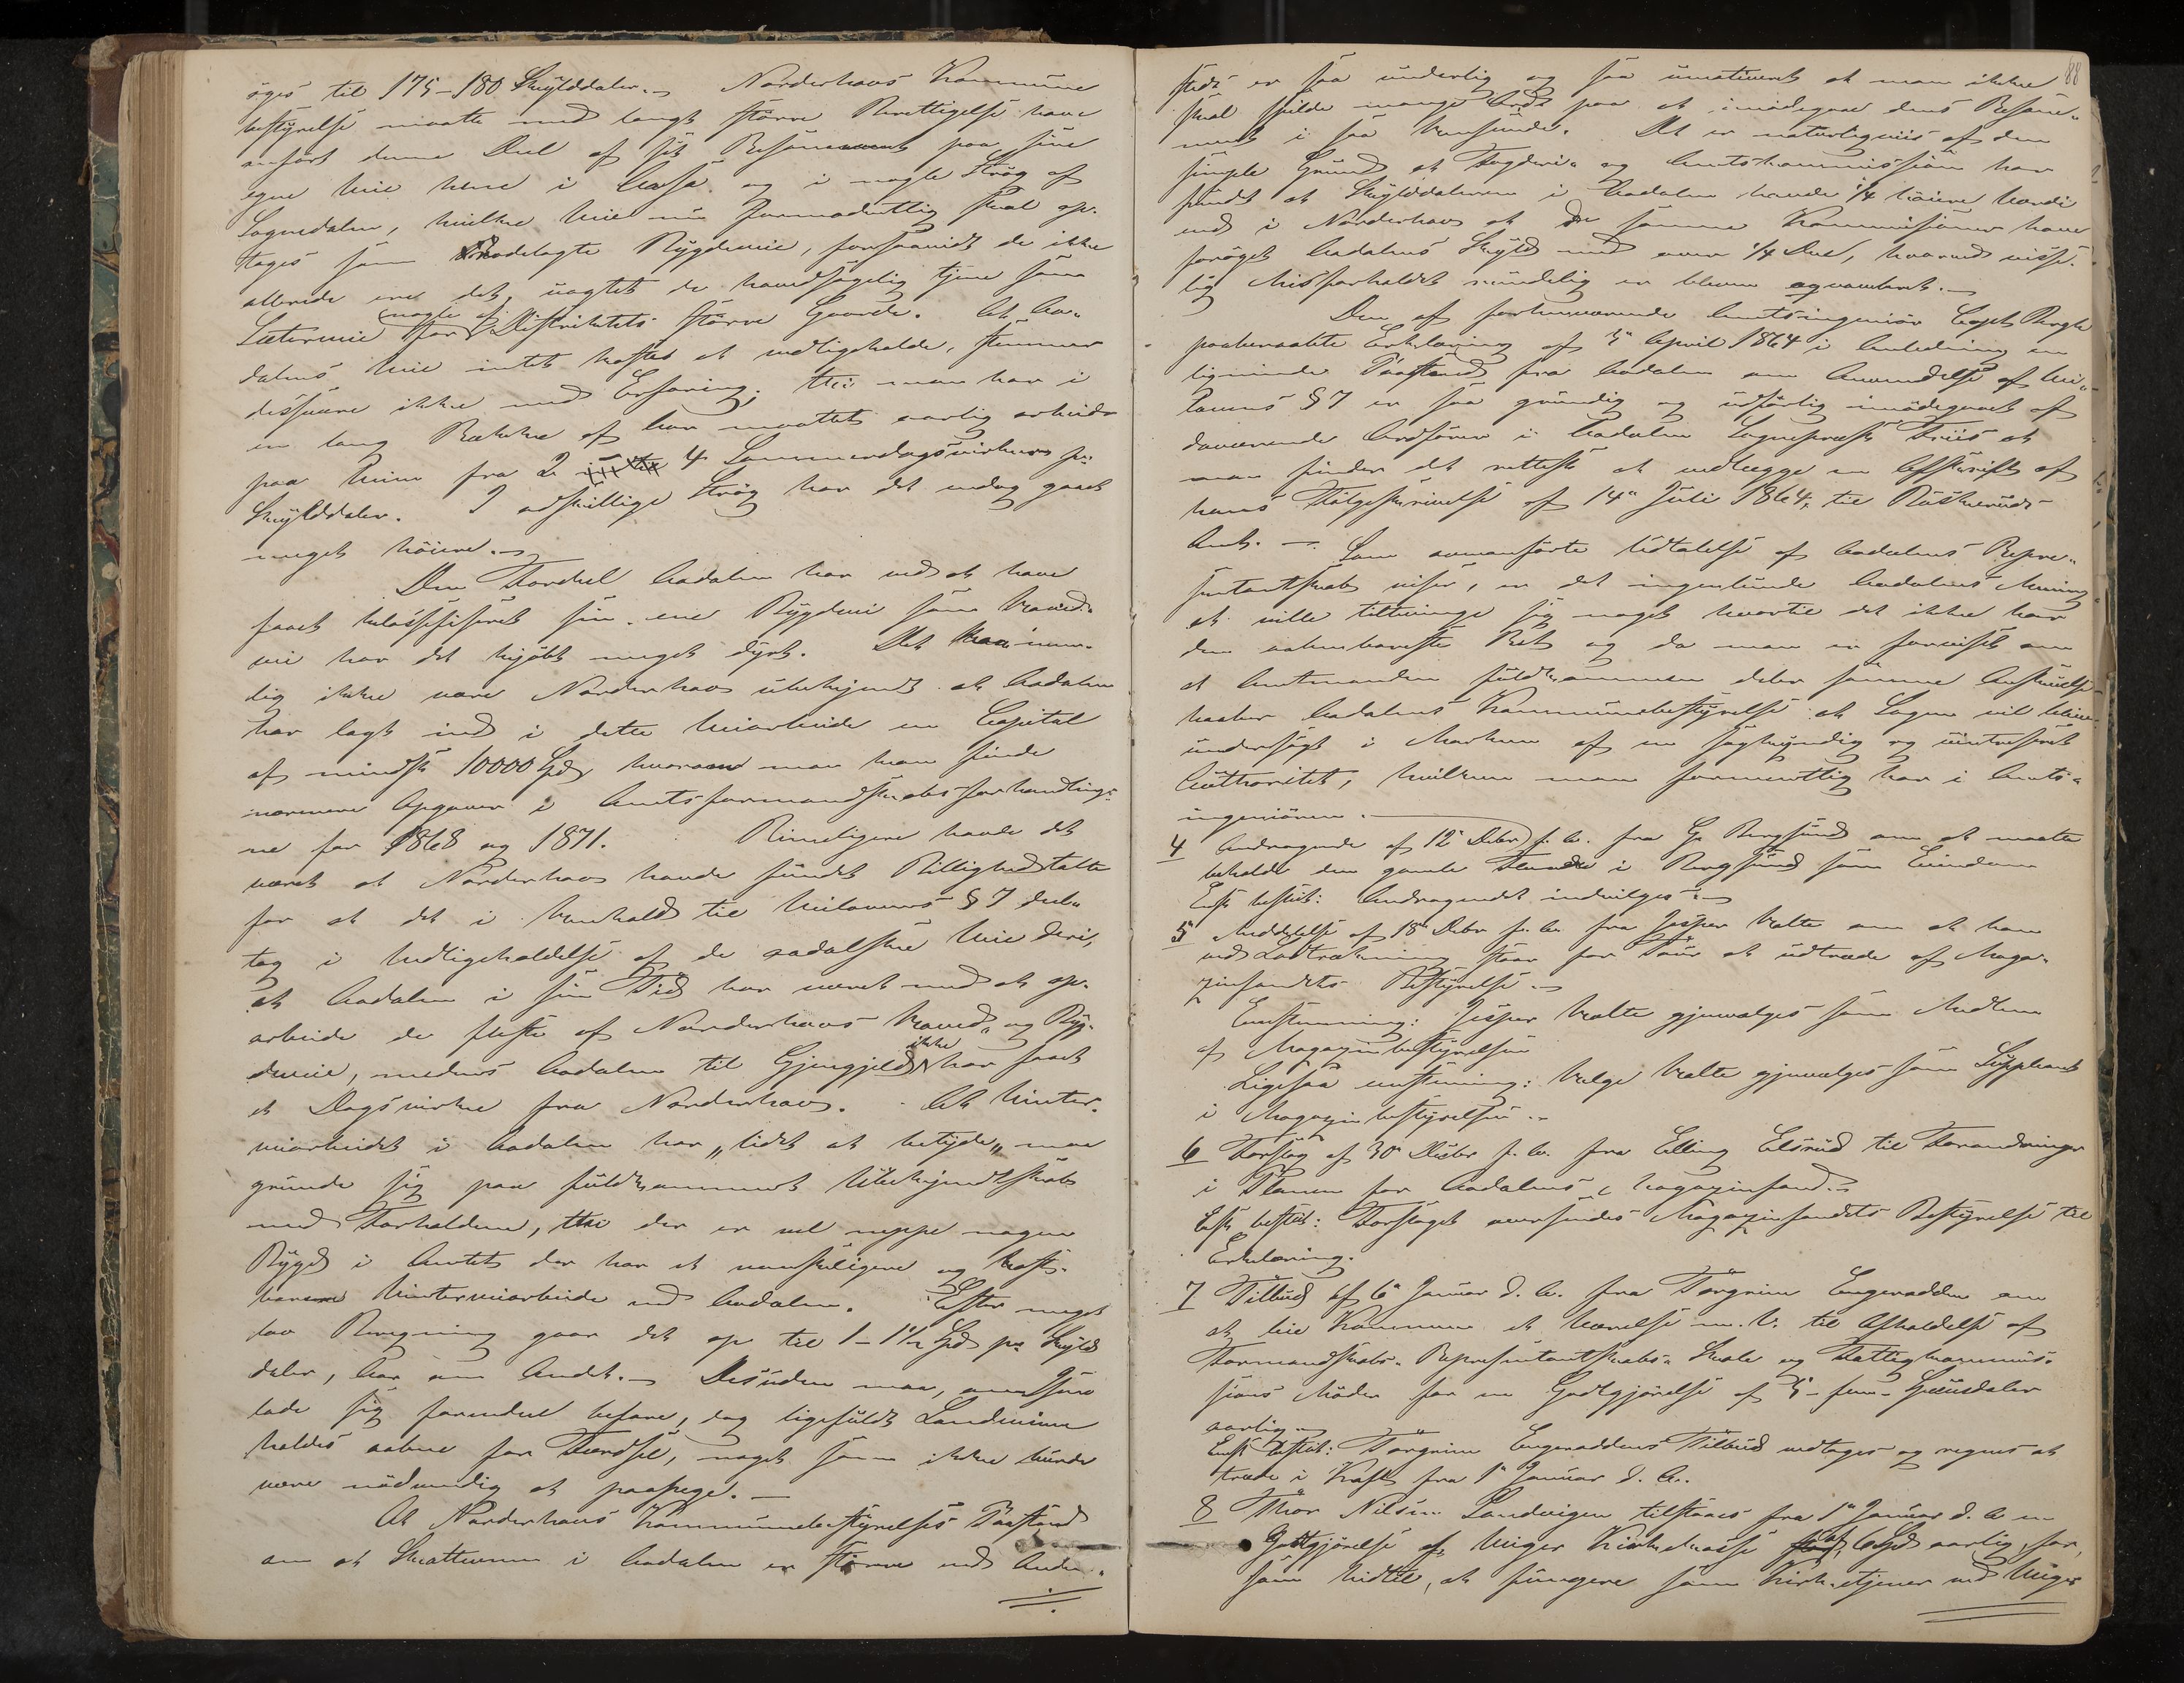 øges til 175-180 Skylddaler. Norderhovs Kommune
bestyrelse maatte med langt større Berettigelse have
anført denne Del af sit Resonnement paa sine
egne Veie henne i Aasa og i nogle Strøg af
Sognedalen, hvilke Veie nu formodentlig skal op-
tages som Rodelagte Bygdeveie, forsaavidt de ikke
allerede ere det, uagtet de hovedsagelig tjene som
Sæterveie for nogle af Distriktets større Gaarde. At Aa-
dalens Veie intet kostes at vedligeholde, stemmer
desværre ikke med Erfaring; thi man har i
en lang Række af Aar maattet aarlig arbeide
paa Veien fra 2 til 4 Sommerdagsværker pr.
Skylddaler. I adskillige Strøg har det endog gaaet
meget høiere.
Den Fordel Aadalen har ved at have
faaet klassificeret sin ene Bygdevei som Hoved-
vei har det kjøbt meget dyrt. Det kan nem-
lig ikke være Norderhov ubekjendt at Aadalen
har lagt ind i dette Veiarbeide en Capital
af mindst 10000 Spd, hvorom man kan finde
nærmere Opgaver i Amtsformandskabsforhandlinger-
ne for 1868 og 1871. Rimeligere havde det
været at Norderhov havde fundet Billighed tale
for at det i Henhold til Veilovens § 7 del-
tog i Vedligeholdelse af de aadalske Veie deri,
at Aadalen i sin Tid har været med at op-
arbeide de fleste af Norderhovs Hoved- og Byg-
deveie, medens Aadalen til Gjengjeld ikke har faaet
et Dagsværke fra Norderhov. At Vinter-
veiarbeidet i Aadalen har „lidet at betyde„ maa
grunde sig paa fuldkomment Ubekjendtskab
med Forholdene, thi der er vel neppe nogen
Bygd i Amtet der har et vanskeligere og kost-
barere Vinterveiarbeide end Aadalen. Efter meget
lav Beregning gaar det op til 1-1½ Spd pr Skyld
daler, Aar om Andet. Desuden maa, om Isen
lade sig forendel befare, dog ligefuldt Landveiene
holdes aabne for Færdsel, noget som ikke burde
være nødvendig at paapege.
At Norderhovs Kommunebestyrelses Paastand
om at Skatteevnen i Aadalen er større end Andre-
88
steds er saa underlig og saa umotiveret at man ikke
skal spilde mange Ord paa at imødegaae dens Resonne-
ment i saa Henseende. Det er naturligviis af den
simple Grund at Fogderi- og Amtskommissioner har
fundet at Skylddaleren i Aadalen havde ¼ høiere Værdi
end i Norderhov at de samme Kommissioner have
forøget Aadalens Skyld med over ¼ Deel, hvorved visse-
lig Misforholdet rundelig er bleven æqvameret.
Den af forhenværende Amtsingeniør Capt. Bergh
paaberaabte Erklæring af 5te April 1864 i Anledning en
lignende Paastand fra Aadalen om Anvendelse af Vei-
lovens § 7 er saa grundig og udførlig imødegaaet af
daværende Ordfører i Aadalen Sognepræst Friis at
man finder det rettest at vedlægge en Afskrift af
hans Følgeskrivelse af 14de Juli 1864 til Buskeruds
Amt.
Som ovenanførte Udtalelse af Aadalens Repre-
sentantskab viser, er det ingenlunde Aadalens Mening
at ville tiltvinge sig noget hvortil det ikke har
den aabenbareste Ret og da man er forvisset om
at Amtmanden fuldkommen deler samme Anskuelse
haaber Aadalens Kommunebestyrelse at Sagen vil blive
undersøgt i Marken af en sagkyndig og uintresseret
Authoritet, hvilken man formentlig har i Amts-
ingeniøren.
4 Andragende af 12te Debr f. A. fra G. Bergsund om at maatte
beholde den gamle i Bergsund som Eiendom
Enst. beslut: Andragendet indvilges.
5 Meddelelse af 18de Debr f. A. fra Jesper Valte om at han
ved Lodtrækning staar for Tour at udtræde af Maga-
zinfondets Bestyrelse.
Enstemmig: Jesper Valte gjenvalges som Medlem
af Magazinbestyrelsen
Ligesaa enstemmig: Helge Valte gjenvalges som Suppleant
i Magazinbestyrelsen.
6 Forslag af 30te Decbr f. A. fra Elling Elsrud til Forandringer
i Planen for Aadalens Magazinfond.
Enst. beslut: Forslaget oversendes Magazinfondets Bestyrelse til
Erklæring.
7 Tilbud af 6te Januar d. A. fra Torgrim Engeradden om
at leie Kommunen et Værelse m. V. til Afholdelse af
Formandskabs- Representantskabs- Skole og Fattigkommis-
sions Møder for en Godtgjørelse af 5 - fem - Speciedaler
aarlig.
Enst. beslut: Torgrim Engeraddens Tilbud vedtages og regnes at
træde i Kraft fra 1te Januar d. A.
8 Thor Nilsen Sandvigen tilstaaes fra 1te Januar d. A en
Godtgjørelse af Viger Kirkekasse 6 Spd aarlig for,
som hidtil, at fungere som Kirketjener ved Viger